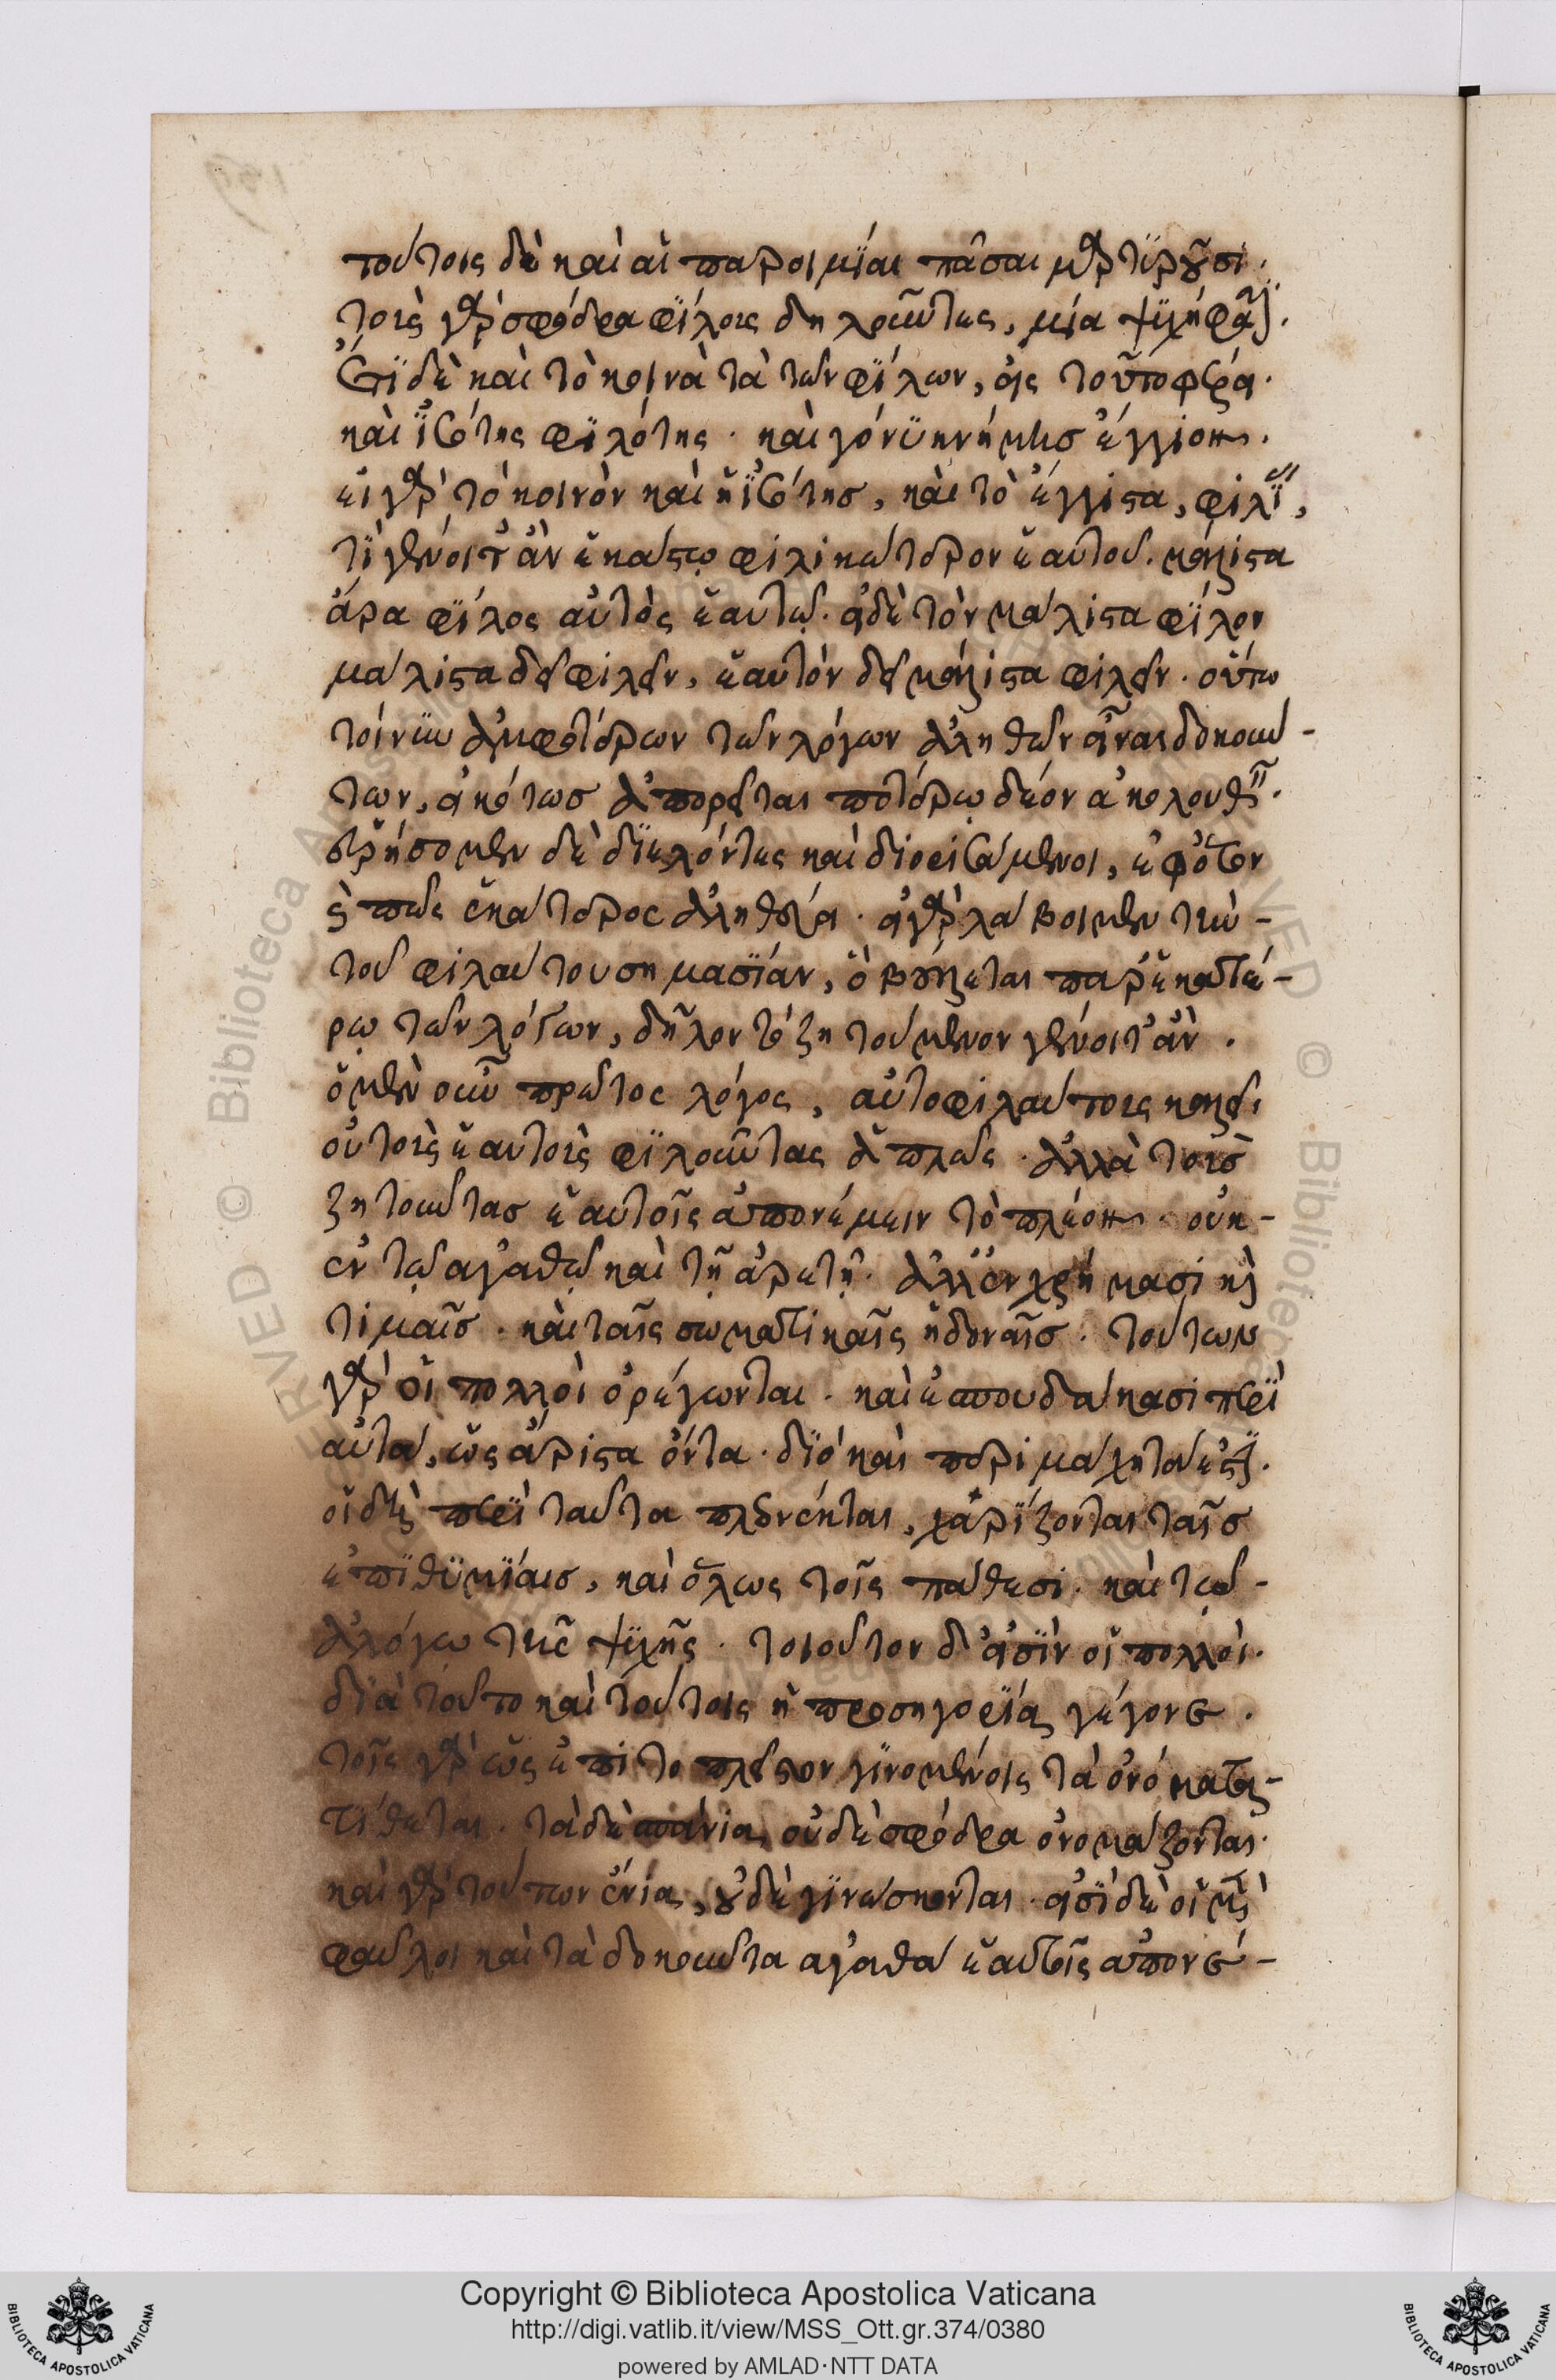 τούτοις δὲ καὶ αἱ παροιμίαι πᾶσαι μαρτυροῦσι.
τοὺς γὰρ σφόδρα φίλους δηλοῦντες, μία ψυχή φασι.
ἔτι δὲ καὶ τὸ κοινὰ τὰ τῶν φίλων, εἰς τοῦτο φέρει.
καὶ ἰσότης φιλότης. καὶ γόνυ κνήμης ἔγγιον.
εἰ γὰρ τὸ κοινὸν καὶ ἡ ἰσότης, καὶ τὸ ἔγγιστα, φιλία,
τί γένοιτ' ἂν ἑκάστῳ φιλικώτερον ἑαυτοῦ. μάλιστα
ἄρα φίλος αὐτὸς ἑαυτῷ. εἰ δὲ τὸν μάλιστα φίλον
μάλιστα δεῖ φιλεῖν, ἑαυτὸν δεῖ μάλιστα φιλεῖν. οὕτω
τοίνυν ἀμφοτέρων τῶν λόγων ἀληθῶν εἶναι δοκούν-
των, εἰκότως ἀπορεῖται ποτέρῳ δέον ἀκολουθεῖν.
εὑρήσομεν δὲ διελόντες καὶ διορισάμενοι, ἐφ' ὅσον
καὶ πῶς ἑκάτερος ἀληθεύει. εἰ γὰρ λάβοιμεν τὴν
τοῦ φιλαύτου σημασίαν, ὃ βούλεται παρ' ἑκατέ-
ρῳ τῶν λόγων, δῆλον τὸ ζητούμενον γένοιτ' ἄν.
ὁ μὲν οὖν πρῶτος λόγος, αὐτοφιλαύτους καλεῖ
οὐ τοὺς ἑαυτοὺς φιλοῦντας ἁπλῶς. ἀλλὰ τοὺς
ζητοῦντας ἑαυτοῖς ἀπονέμειν τὸ πλέον. οὐκ
ἐν τῷ ἀγαθῷ καὶ τῇ ἀρετῇ. ἀλλ' ἐν χρήμασι καὶ
τιμαῖς. καὶ ταῖς σωματικαῖς ἡδοναῖς. τούτων
γὰρ οἱ πολλοὶ ὀρέγωνται. καὶ ἐσπουδάκασι περὶ
αὐτά, ὡς ἄριστα ὄντα. διὸ καὶ περιμάχητά ἐστι.
οἱ δὲ περὶ ταῦτα πλεονέκται, χαρίζονται ταῖς
ἐπιθυμίαις, καὶ ὅλως τοῖς πάθεσι. καὶ τῷ
ἀλόγῳ τῆς ψυχῆς. τοιοῦτον δ' εἰσὶν οἱ πολλοί.
διὰ τοῦτο καὶ τούτοις ἡ προσηγορία γέγονε.
τοῖς γὰρ ὡς ἐπὶ τὸ πλεῖστον γινομένοις τὰ ὀνόματα
τίθεται. τὰ δὲ σπάνια, οὐδὲ σφόδρα ὀνομάζονται.
καὶ γὰρ τούτων ἔνια, οὐδὲ γινώσκονται. εἰσὶ δὲ οἱ μὲν
φαῦλοι καὶ τὰ δοκοῦντα ἀγαθὰ ἑαυτοῖς ἀπονέ-
Copyright © Biblioteca Apostolica Vaticana
http://digi.vatlib.it/view/MSS_Ott.gr.374/0380
powered by AMLAD·NTT DATA